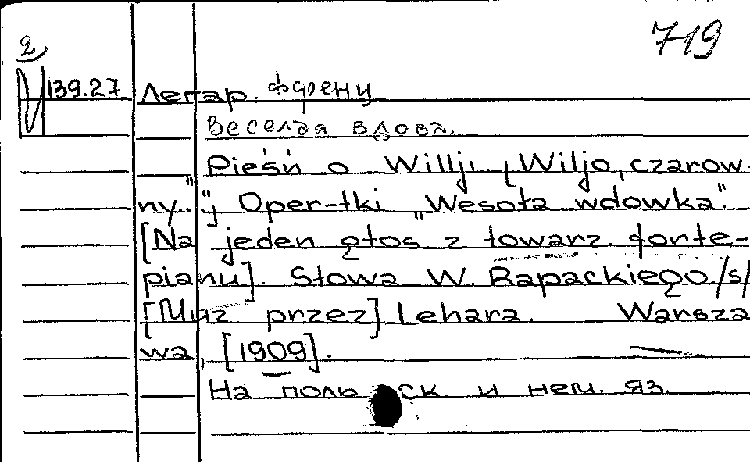 719
2
139.27 Легар. Ференц
Веселая вдова.
Pieśń o Willji „Wiljo, czarow-
ny..."; Oper-tki „Wesoła wdówka".
[Na jeden głos z towarz. forte-
pianu]. Słowa W. Rapackiego /s/
[Muz przez] Lehara. Warsza
wa, [1909].
На польск и нем. яз.